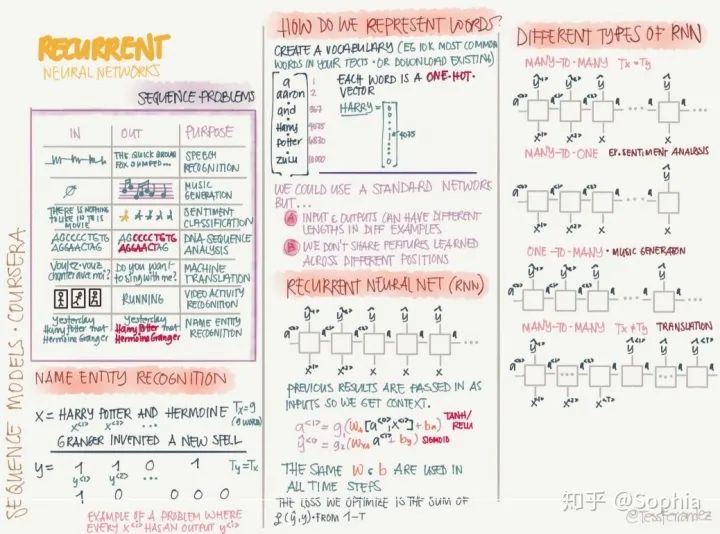 RECURRENT
NEURAL NETWORKS
SEQUENCE PROBLEMS
IN OUT PURPOSE
THE QUICK BROWN FOX JUMPED... SPEECH RECOGNITION
∅ MUSIC GENERATION
THERE IS NOTHING TO LIKE IN THIS MOVIE SENTIMENT CLASSIFICATION
AGCCCCTGTG AGGAACTAG AGCCCCTGTG AGGAACTAG DNA-SEQUENCE ANALYSIS
Voulez-vous chanter avec moi? Do you want to sing with me? MACHINE TRANSLATION
RUNNING VIDEO ACTIVITY RECOGNITION
Yesterday Harry Potter met Hermione Granger Yesterday Harry Potter met Hermione Granger NAME ENTITY RECOGNITION
SEQUENCE MODELS · COURSERA
NAME ENTITY RECOGNITION
X = HARRY POTTER AND HERMOINE Tx=9
x<1> x<2> ... (9 WORDS)
GRANGER INVENTED A NEW SPELL
y = 1 1 0 1 Ty=Tx
y<1> y<2> ...
1 0 0 0 0
EXAMPLE OF A PROBLEM WHERE
EVERY x<i> HAS AN OUTPUT y<i>
HOW DO WE REPRESENT WORDS?
CREATE A VOCABULARY (EG 10K MOST COMMON
WORDS IN YOUR TEXTS · OR DOWNLOAD EXISTING)
a 1
aaron 2
and 367
Harry 4075
Potter 6830
zulu 10000
EACH WORD IS A ONE·HOT·
VECTOR
HARRY = 0 0 1 0 4075
WE COULD USE A STANDARD NETWORK
BUT...
A INPUT & OUTPUTS CAN HAVE DIFFERENT
LENGTHS IN DIFF EXAMPLES
B WE DON'T SHARE FEATURES LEARNED
ACROSS DIFFERENT POSITIONS
RECURRENT NEURAL NET (RNN)
ŷ<1> ŷ<2> ŷ ŷ ŷ
a<0> a<1> a a a a ...
x<1> x<2> x x x
PREVIOUS RESULTS ARE PASSED IN AS
INPUTS SO WE GET CONTEXT.
a<1> = g1(Wa[a<0>, x<1>] + ba) TANH/RELU
ŷ<1> = g2(Wya a<1> + by) SIGMOID
THE SAME W & b ARE USED IN
ALL TIME STEPS
THE LOSS WE OPTIMIZE IS THE SUM OF
ℒ(ŷ,y) · FROM 1-T
DIFFERENT TYPES OF RNN
MANY·TO·MANY Tx = Ty
ŷ<1> ŷ<2> ŷ ŷ
a<0> a a a ... a
x<1> x<2> x x
MANY·TO·ONE EX. SENTIMENT ANALYSIS
ŷ
a<0> a a a ... a
x<1> x<2> x x
ONE·TO·MANY · MUSIC GENERATION
ŷ<1> ŷ<2> ŷ ŷ
a<0> a a a ... a
x
MANY·TO·MANY Tx ≠ Ty TRANSLATION
ŷ<1> ŷ ŷ<Ty>
a<0> ... ...
x<1> x<2> x<Tx>
知乎 @Sophia
@TessFerrandez